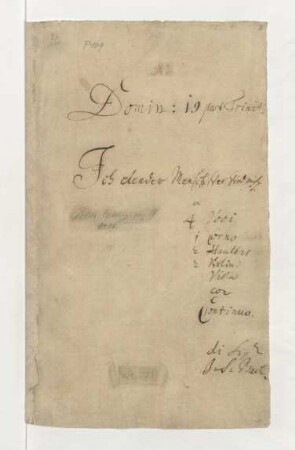 Domin: 19 post Trinit:
Ich elender Mensch, wer wird mich
a
4 Voci
1 Corno
2 Hautb:
2 Violin.
Viola
con
Continuo.
di Sigre
J. S. Bach.